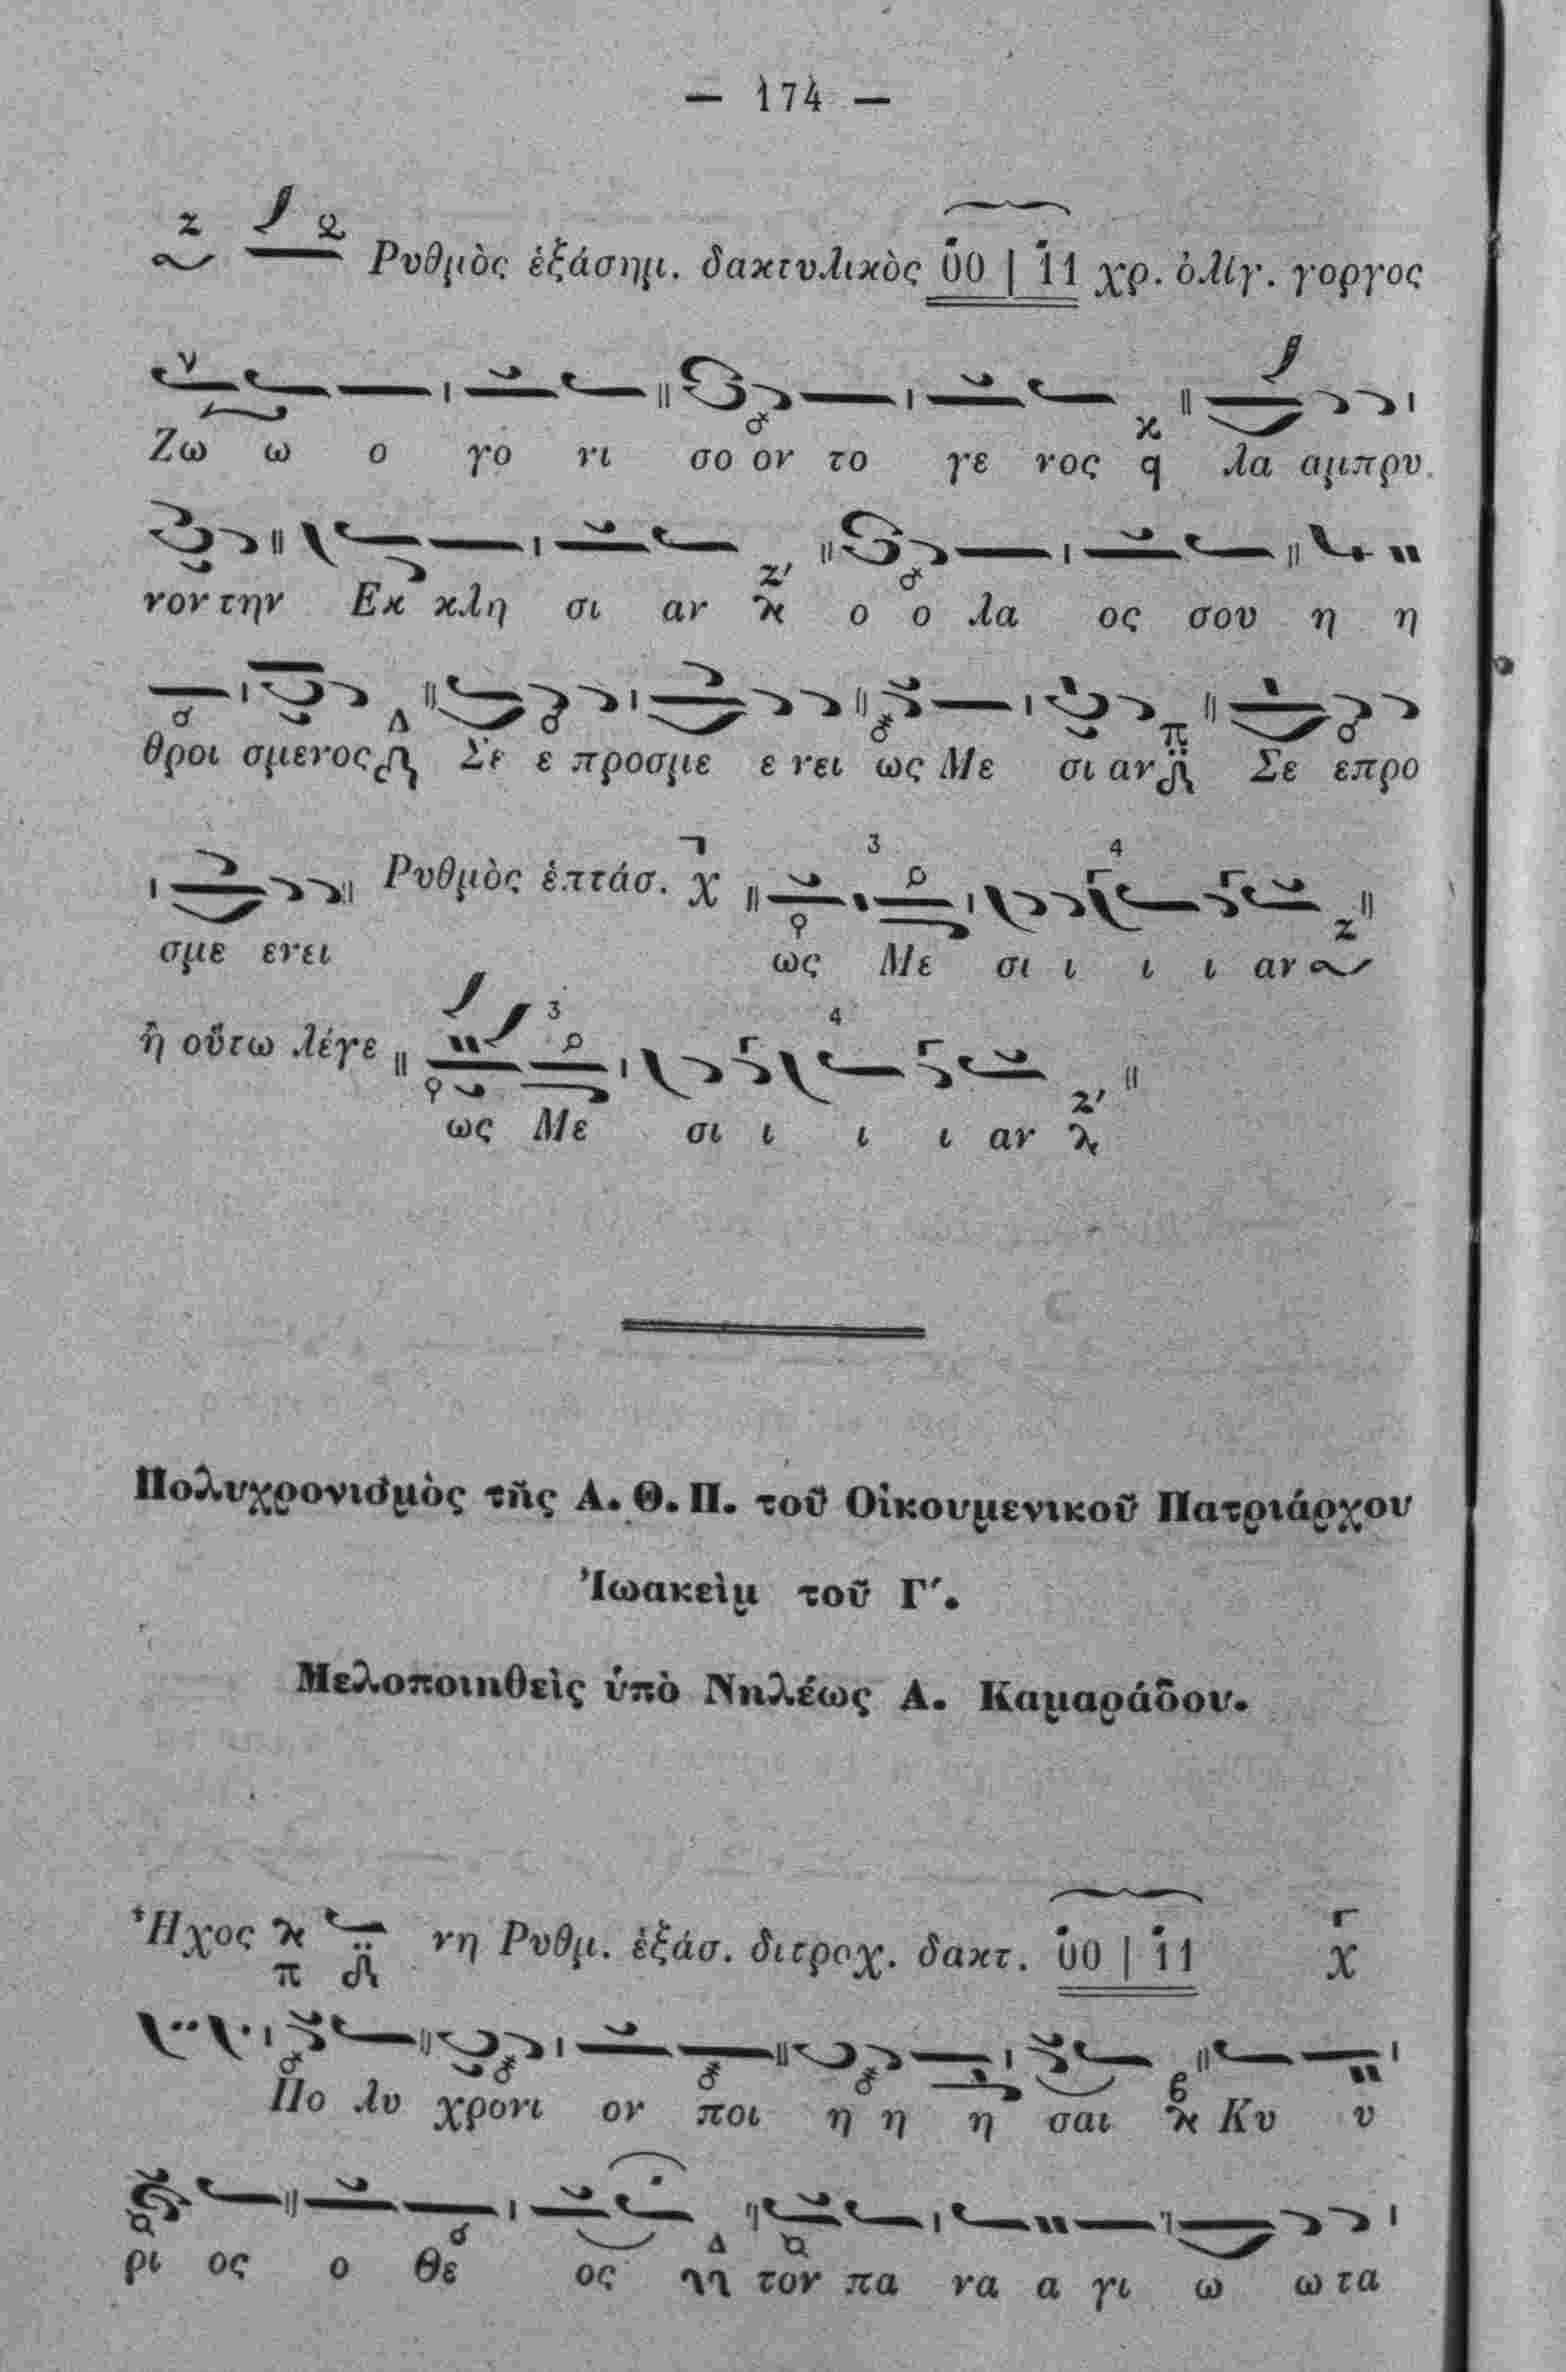 — 174 —
Ρυθμὸς ἑξάσημ. δακτυλικὸς 00 | 11 χρ. ὀλίγ. γοργος
Ζω ω ο γο νι σο ον το γε νος q λα αμπρυ
νον την Εκ κλη σι αν ο ο λα ος σου η η
θροι σμενος Σε ε προσμε ε νει ως Με σι αν Σε επρο
Ρυθμὸς ἑπτάσ. χ 3 4
σμε ενει ως Με σι ι ι ι αν
ἢ οὕτω λέγε 3 4
ως Με σι ι ι ι αν
Πολυχρονισμὸς τῆς Α. Θ. Π. τοῦ Οἰκουμενικοῦ Πατριάρχου
Ἰωακεὶμ τοῦ Γʹ.
Μελοποιηθεὶς ὑπὸ Νηλέως Α. Καμαράδου.
Ἦχος π νη Ρυθμ. ἑξάσ. διτροχ. δακτ. 00 | 11 χ
Πο λυ χρονι ον ποι η η η σαι Κυ υ
ρι ος ο Θε ος τον πα να α γι ω ω τα